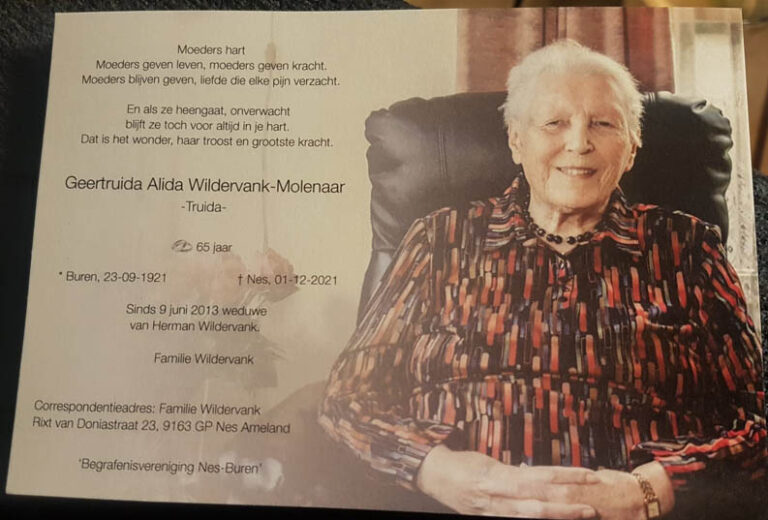 Moeders hart
Moeders geven leven, moeders geven kracht.
Moeders blijven geven, liefde die elke pijn verzacht.
En als ze heengaat, onverwacht
blijft ze toch voor altijd in je hart.
Dat is het wonder, haar troost en grootste kracht.
Geertruida Alida Wildervank-Molenaar
-Truida-
65 jaar
* Buren, 23-09-1921 † Nes, 01-12-2021
Sinds 9 juni 2013 weduwe
van Herman Wildervank.
Familie Wildervank
Correspondentieadres: Familie Wildervank
Rixt van Doniastraat 23, 9163 GP Nes Ameland
"Begrafenisvereniging Nes-Buren"